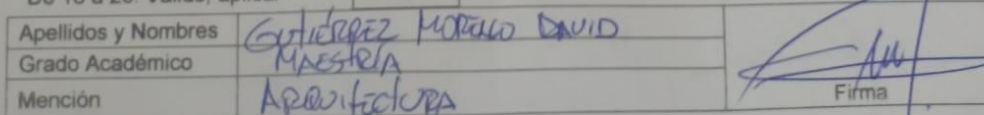 De 18 a 20: Válido, aplicar
Apellidos y Nombres GUTIÉRREZ MORENO DAVID
Grado Académico MAESTRÍA
Mención ARQUITECTURA
Firma